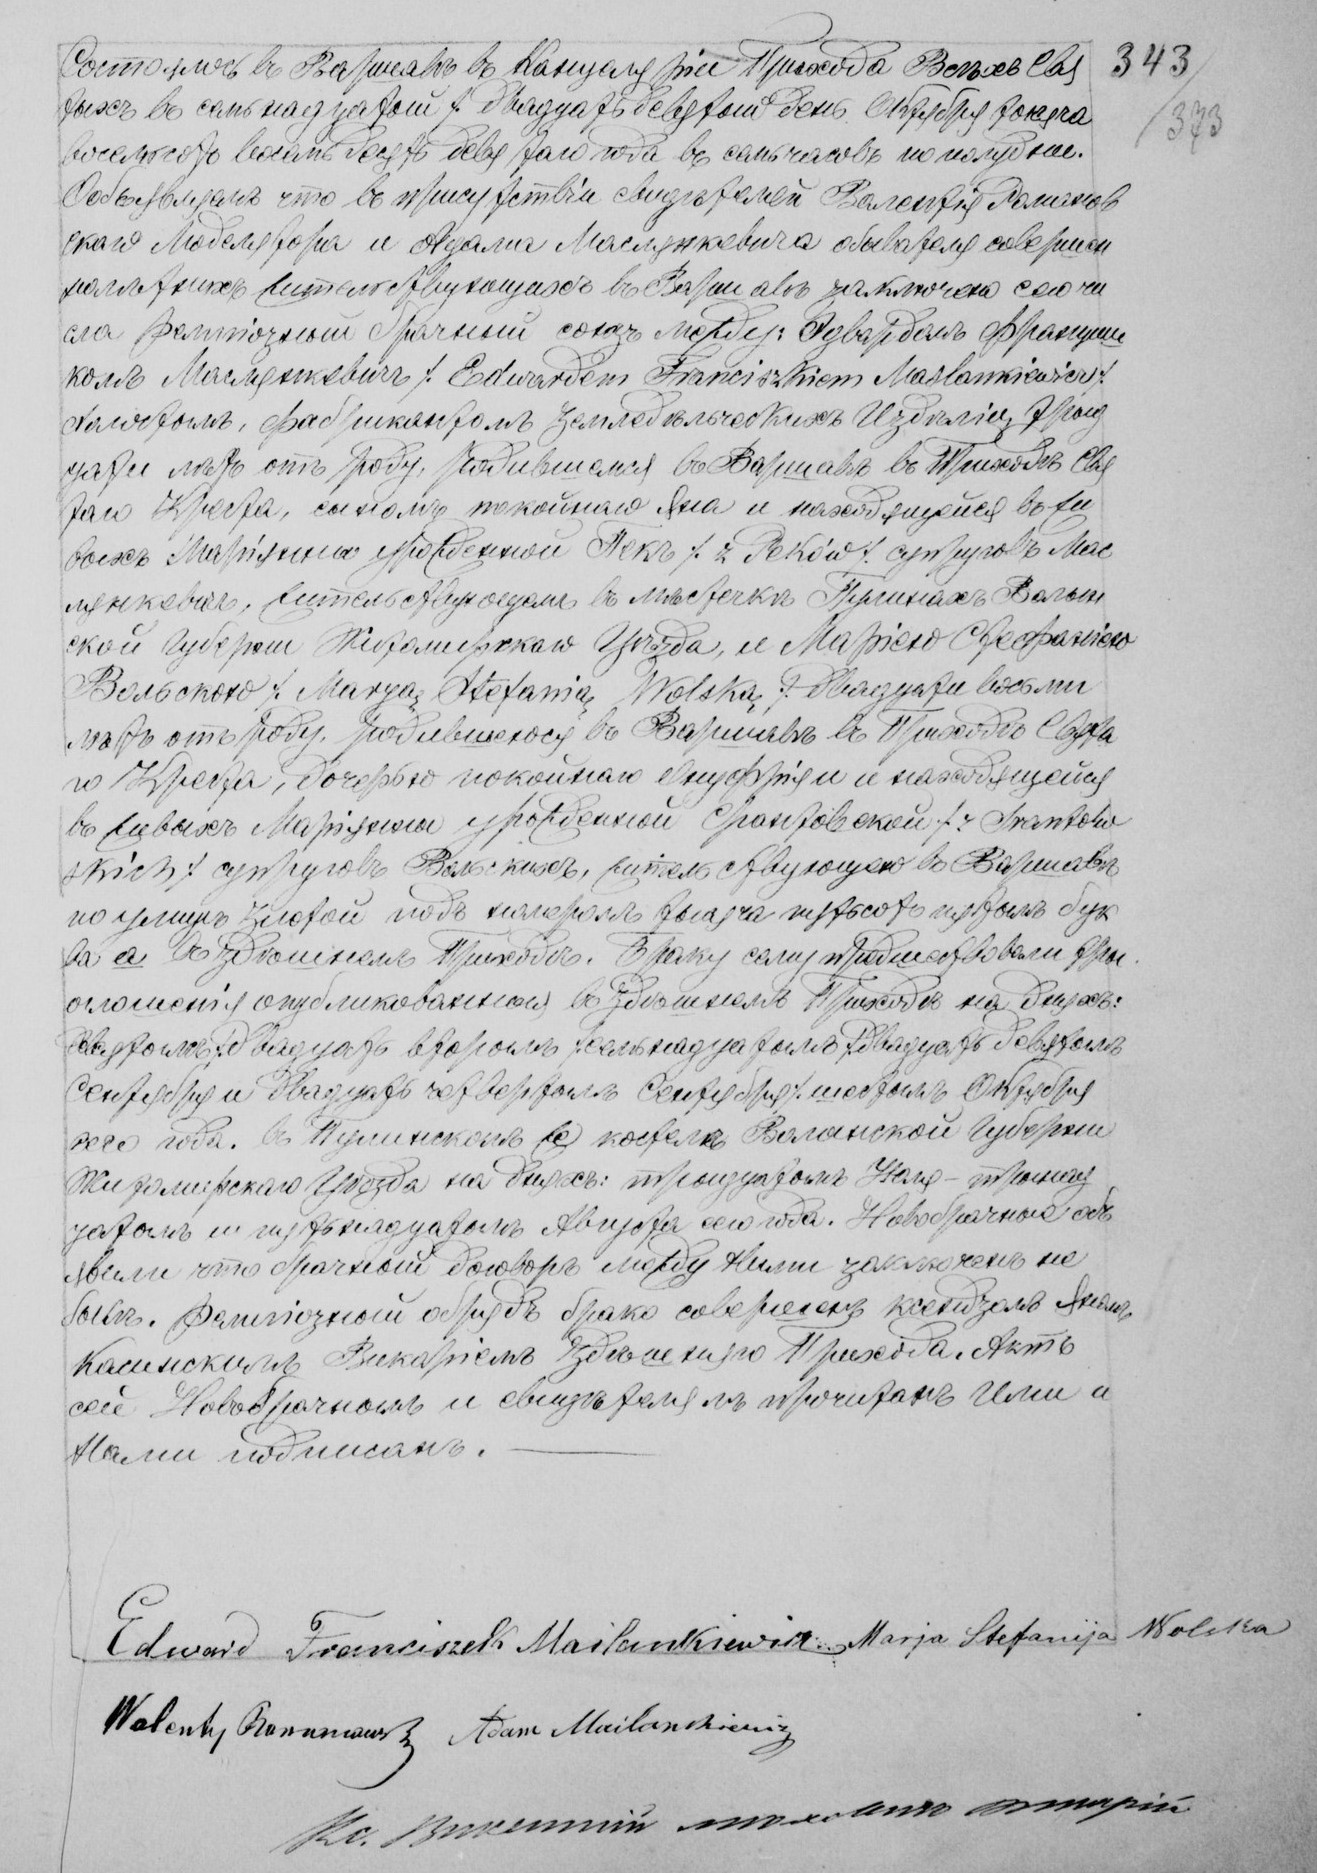 Состоялось въ Варшавѣ въ Канцеляріи Прихода Всѣхъ Свя
343
тыхъ въ семьнадцатый /. двадцать девятый день Октября тысяча
373
восемьсотъ восемьдесятъ девятаго года въ семь часовъ по полудни.
Объявляемъ что въ присутствіи свидѣтелей Валентія Романов
скаго Моделятора и Адама Маслянкевича обывателя совершен
нолѣтнихъ жительствующихъ въ Варшавѣ заключенъ сего чи
сла религіозный брачный союзъ между: Эдвардомъ Францыш
комъ Маслянкевичъ /. Edwardem Franciszkiem Maślankiewicz /.
холостымъ, фабрикантомъ Земледѣльческихъ Издѣлій, трид
цати лѣтъ отъ роду, родившемся въ Варшавѣ въ Приходѣ Свя
таго Креста, сыномъ покойнаго Яна и находящейся въ жи
выхъ Маріянны урожденной Пекъ /. z Peków /. супруговъ Мас
лянкевичъ, жительствующемъ въ мѣстечкѣ Пулинахъ Волын
ской Губерніи Житомирскаго Уѣзда, и Маріею Стефаніею
Вольскою /. Maryą Stefanią Wolską /. двадцати восьми
лѣтъ отъ роду, родившеюся въ Варшавѣ въ Приходѣ Свята
го Креста, дочерью покойнаго Онуфрія и находящейся
въ живыхъ Маріянны урожденной Срантовской /. z Srantow
skich /. супруговъ Вольскихъ, жительствующею въ Варшавѣ
по улицѣ Злотой подъ номеромъ тысяча пятьсотъ пятымъ бук
ва а въ здѣшнемъ Приходѣ. Браку сему предшествовали три
оглашенія опубликованныя въ здѣшнемъ Приходѣ на дняхъ:
двадцать вторымъ семьнадцатымъ /. двадцать девятымъ
Сентября и двадцать четвертымъ Сентября /. шестымъ Октября
сего года. въ Пулинскомъ костелѣ Волынской Губерніи
Житомирскаго Уѣзда на дняхъ: тридцатомъ Іюля – тринад
цатомъ и пятьнадцатомъ Августа сего года. Новобрачные объ
явили что брачный договоръ между Ними заключенъ не
былъ. Религіозный обрядъ брака совершенъ ксендзомъ Яномъ
Касинскимъ Викаріемъ здѣшняго Прихода. Актъ
сей Новобрачнымъ и свидѣтелямъ прочитанъ Ими и
Нами подписанъ.
Edward Franciszek Maślankiewicz Marja Stefanija Wolska
Walenty Romanowski Adam Maślankiewicz
Кс. Викентій